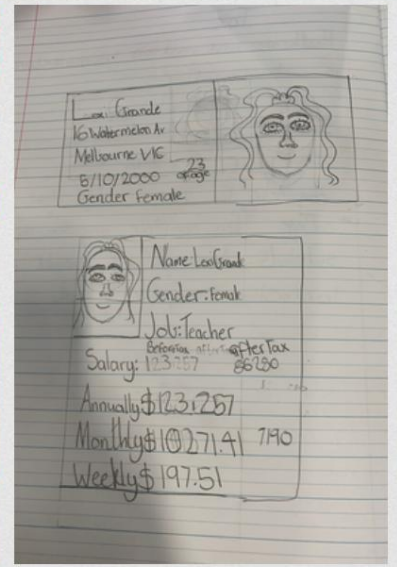 Grande
16 Watermelon Av
Melbourne VIC
23
5/10/2000 of age
Gender Female
Name Lexi Grande
Gender: Female
Job: Teacher
Before Tax after Tax
Salary: 123257 86280
Annually $123,257
Monthly $10271.41 7190
Weekly $197.51